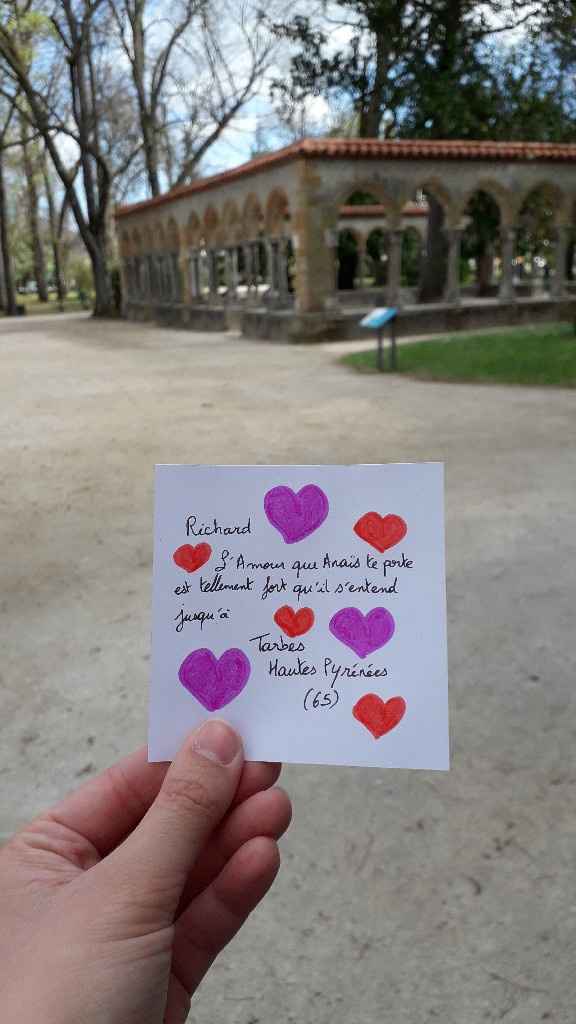 Richard
L'Amour que Anaïs te porte
est tellement fort qu'il s'entend
jusqu'à
Tarbes
Hautes Pyrénées
(65)